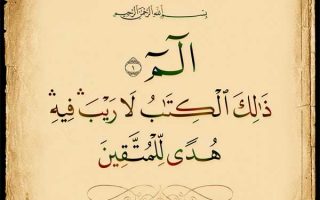 بِسْمِ اللَّهِ الرَّحْمَٰنِ الرَّحِيمِ
الٓمٓ ۝١
ذَٰلِكَ ٱلْكِتَابُ لَا رَيْبَ ۛ فِيهِ ۛ
هُدًى لِّلْمُتَّقِينَ